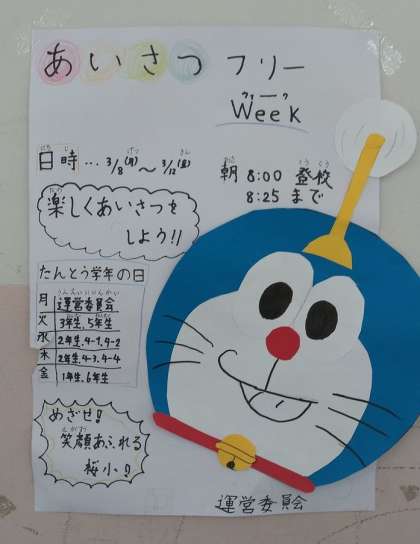 あいさつ フリー
ウィーク
Week
日時… 3/8(月)～3/12(金)
朝 8:00 登校
8:25 まで
楽しくあいさつを
しよう!!
たんとう学年の日
月 運営委員会
火 3年生、5年生
水 2年生、4-1、4-2
木 2年生、4-3、4-4
金 1年生、6年生
めざせ!
笑顔あふれる
桜小
運営委員会